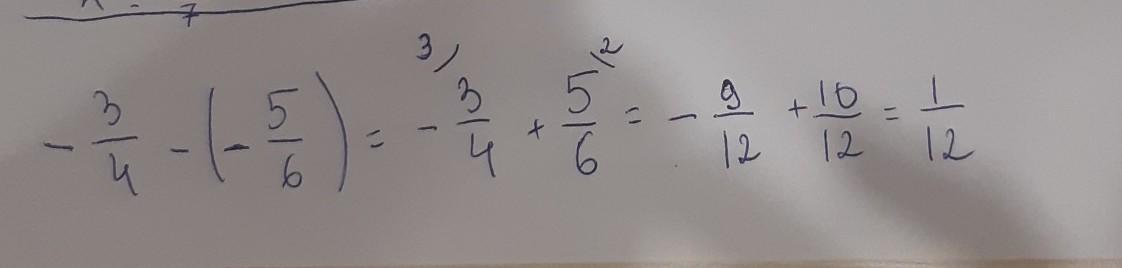 - 3/4 - (- 5/6) = - 3/4 + 5/6 = - 9/12 + 10/12 = 1/12